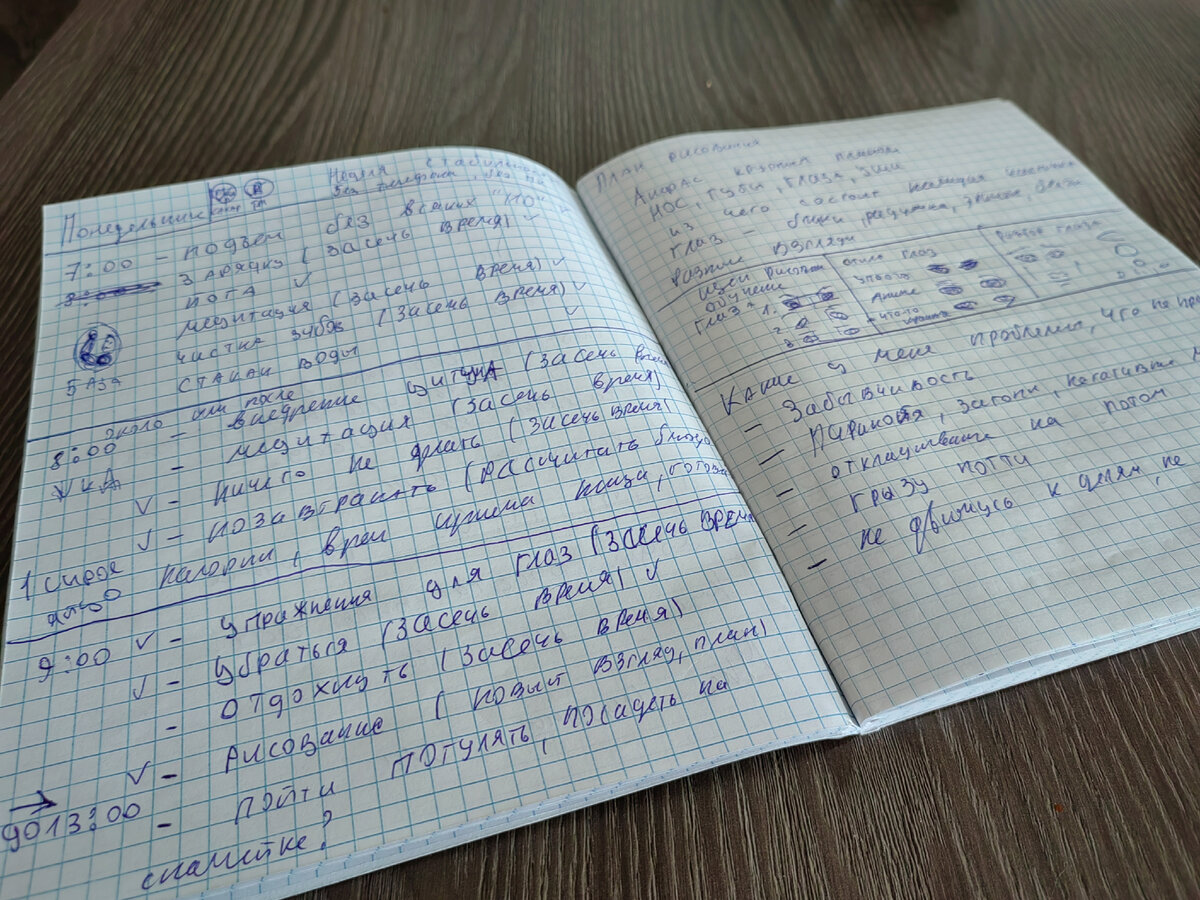 Неделя стабильности
Без телефона, без
Понедельник
7:00 - подъем без всяких "но"
8:00
зарядку (засечь время) ✓
йога ✓
медитация (засечь время) ✓
чистка зубов (засечь время) ✓
БАЗА стакан воды ✓
около или после
8:00 - внедрение (засечь время
- медитация (засечь время)
✓ - ничего не делать (засечь время)
✓ - позавтракать (рассчитать блюдо
калории, врем приема пищи, готов
9:00 ✓ - упражнения для глаз (засечь время
✓ - убраться (засечь время) ✓
- отдохнуть (засечь время)
✓ - Рисование (новый взгляд, план)
→
до 13:00 - пойти погулять, посидеть на
скамейке?
План рисования
Анфас крупным планом
нос, губы, глаза, уши
из чего состоит
Глаз - блики радужка, зрачок,
разные взгляды
обучение
глаз 1.
2
3
стили глаз
Аниме
что-то
разрез глаза
Какие у меня проблемы, что не
- Забывчивость
- Паранойя, загоны, негативные
- откладывание на потом
- грызу ногти
- не двигаюсь к целям, не